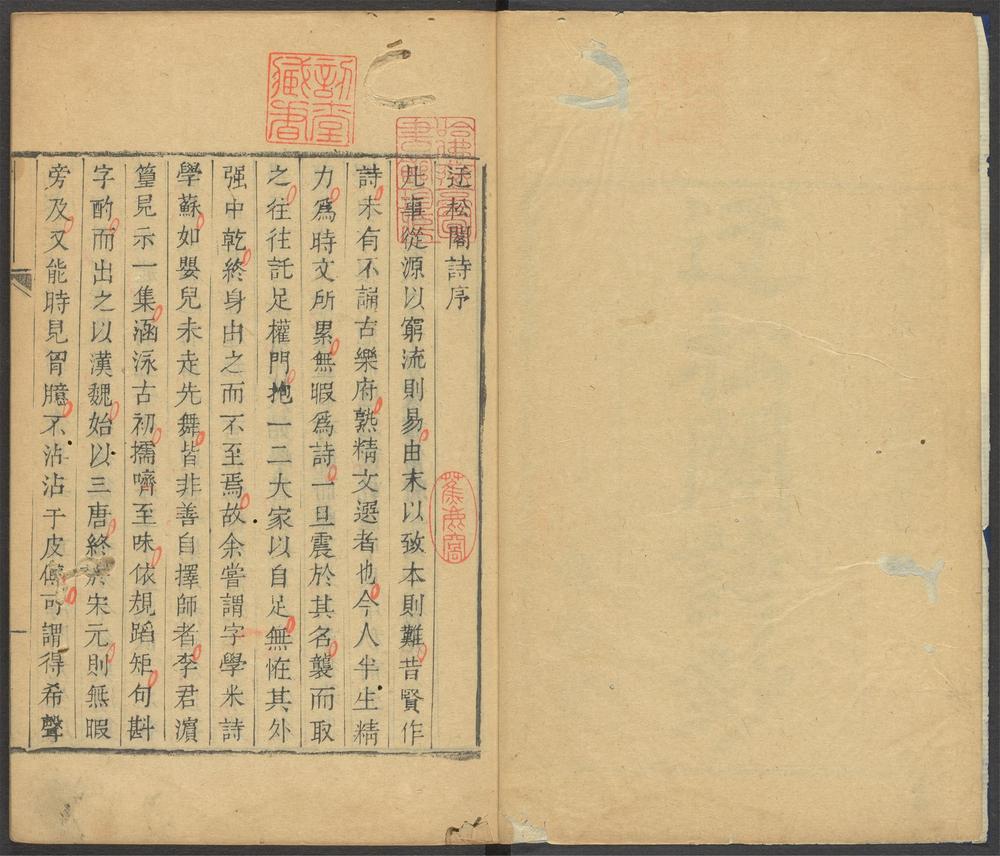 迋松閣詩序
凡事從源以窮流則易由末以致本則難昔賢作
詩未有不誦古樂府熟精文選者也今人半生精
力爲時文所累無暇爲詩一旦震於其名襲而取
之往往託足權門抱一二大家以自足無恠其外
强中乾終身由之而不至焉故余嘗謂字學米詩
學蘇如嬰兒未走先舞皆非善自擇師者李君濵
篁見示一集涵泳古初擩嚌至味依規蹈矩句斟
字酌而出之以漢魏始以三唐終於宋元則無暇
旁及又能時見胷臆不沾沾于皮傅可謂得希聲
訒堂藏書
蕉鹿窩